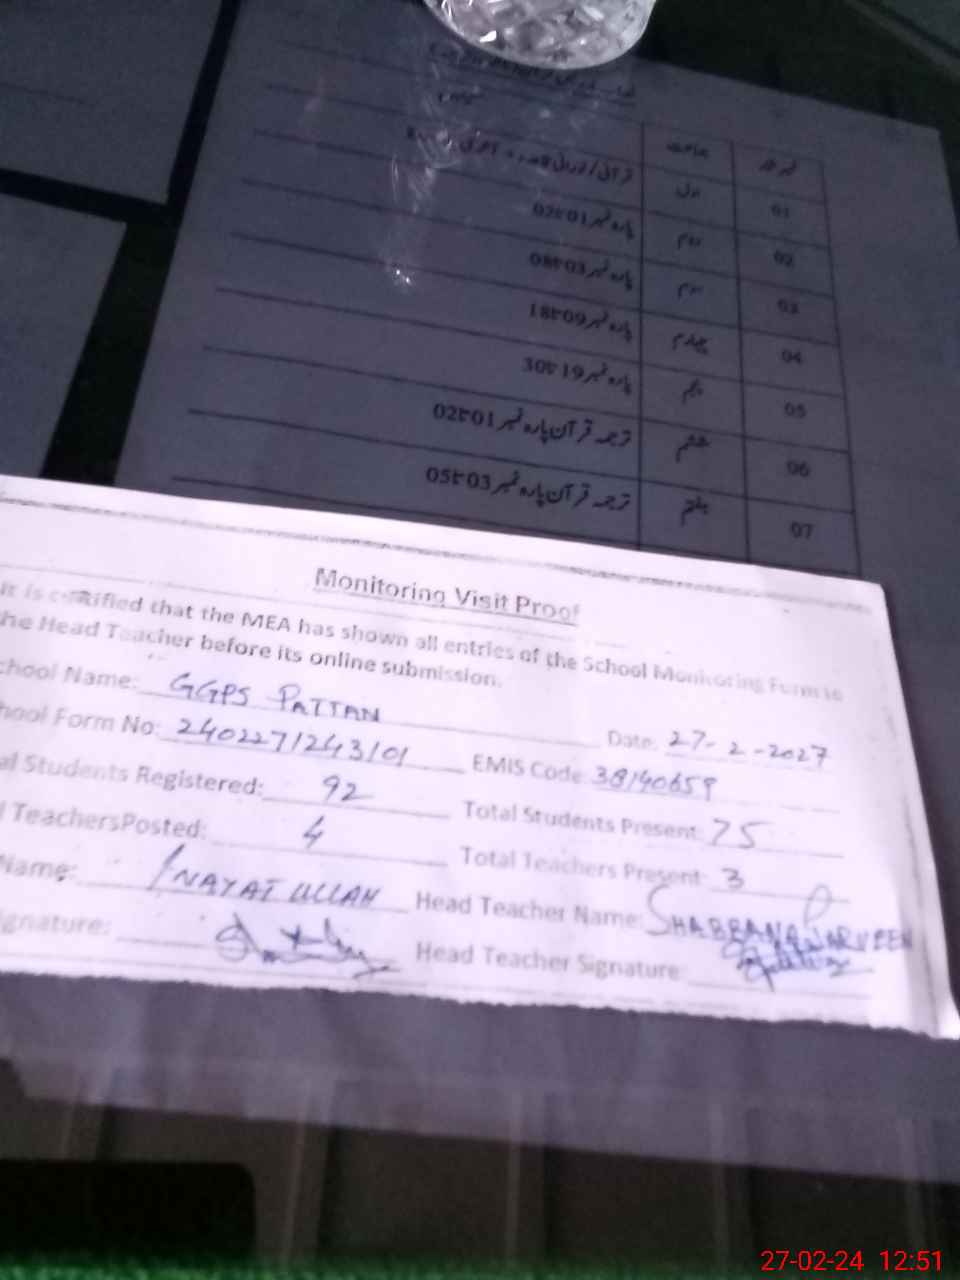 نمبر شمار جماعت
01 اول
02 دوم پارہ نمبر 01 تا 02
03 سوم پارہ نمبر 03 تا 08
04 چہارم پارہ نمبر 09 تا 18
05 پنجم پارہ نمبر 19 تا 30
06 ششم ترجمہ قرآن پارہ نمبر 01 تا 02
07 ہفتم ترجمہ قرآن پارہ نمبر 03 تا 05
Monitoring Visit Proof
It is certified that the MEA has shown all entries of the School Monitoring Form to
he Head Teacher before its online submission.
chool Name: GGPS PATTAN Date: 27-2-2027
hool Form No: 2402271243101 EMIS Code: 38140659
al Students Registered: 92 Total Students Present: 75
l TeachersPosted: 4 Total Teachers Present: 3
Name: INAYAT ULLAH Head Teacher Name: SHABBANA PARVEEN
ignature: Head Teacher Signature:
27-02-24 12:51